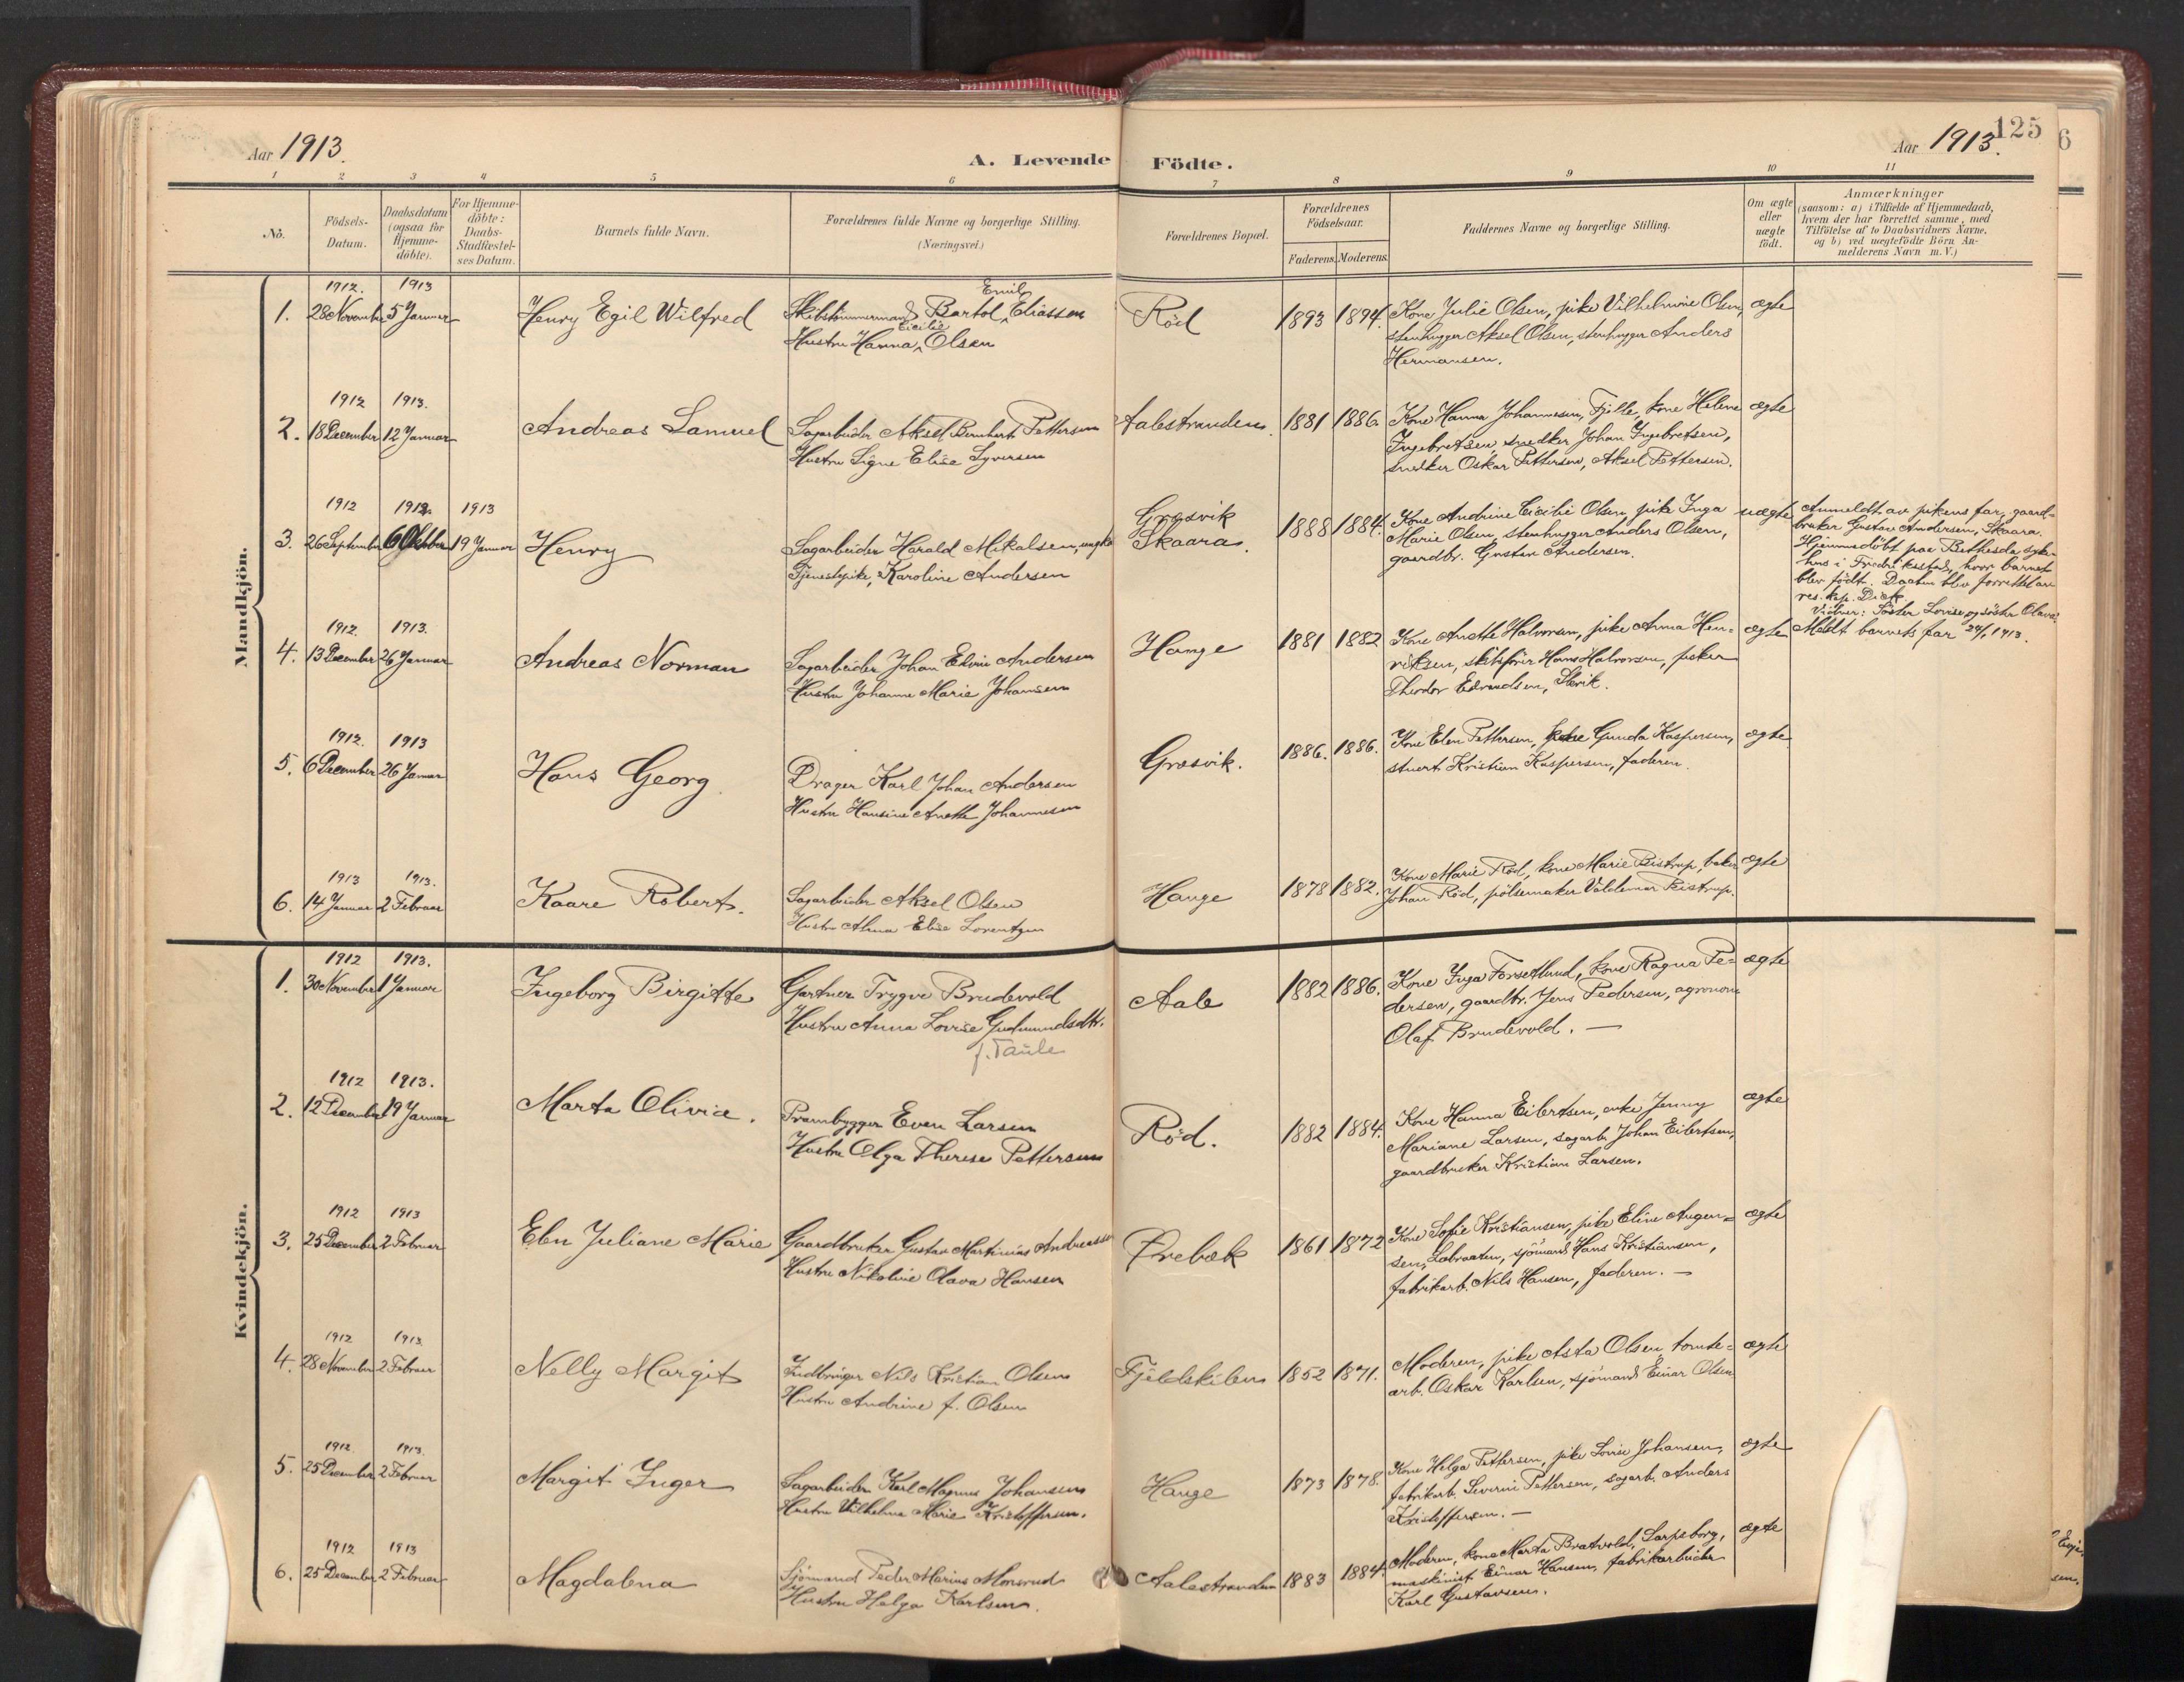 Aar 1913.
A. Levende Födte.
Aar 1913.
125
6
1 2 3 4 5 6 7 8 9 10 11
No.
Födsels-Datum.
Daabsdatum (ogsaa for Hjemme-döbte).
For Hjemme-döbte: Daabs-Stadfæstel-ses Datum.
Barnets fulde Navn.
Forældrenes fulde Navne og borgerlige Stilling.
(Næringsvei.)
Forældrenes Bopæl.
Forældrenes Födselsaar.
Faderens. Moderens.
Faddernes Navne og borgerlige Stilling.
Om ægte eller uægte födt.
Anmærkninger
(saasom: a) i Tilfælde af Hjemmedaab,
hvem der har forrettet samme, med
Tilföielse af to Daabsvidners Navne.
og b) ved uægtefödte Börn An-
melderens Navn m. V.)
Mandkjön.
1912. 1913
1. 28 November 5 Januar
Henry Egil Wilfred
Emil
Skibstømmermand Bartol Eliassen
Cicilie
Hustru Hanna Olsen
Röd
1893 1894.
Kone Julie Olsen, pike Vilhelmine Olsen,
stenhugger Aksel Olsen, stenhugger Anders
Hermansen.
ægte
1912 1913.
2. 18 December 12 Januar
Andreas Samuel
Sagarbeider Aksel Bernhart Pettersen
Hustru Signe Elise Syversen
Aalestranden.
1881 1886.
Kone Hanna Johannesen, Fjelle, kone Helene
Ingebretsen, snedker Johan Ingebretsen,
snedker Oskar Pettersen, Aksel Pettersen.
ægte
1912 1912. 1913
3. 26 September 6 Oktober 19 Januar
Henry
Sagarbeider Harald Mikalsen, ungk.
Tjenestepike, Karoline Andersen
Græsvik
Skaara.
1888 1884.
Kone Andrine Cicilie Olsen, pike Inga
Marie Olsen, stenhugger Anders Olsen,
gaardbr. Gustav Andersen.
uægte
Anmeldt av pikens far, gaard-
bruker Gustav Andersen, Skaara.
Hjemmedöbt paa Bethesda syke-
hus i Fredrikstad, hvor barnet
blev födt. Daaben blev forrettet av
res. kap. Dick.
Vidner: Söster Lovise og söster Olava.
1912. 1913.
4. 13 December 26 Januar
Andreas Norman
Sagarbeider Johan Edvin Andersen
Hustru Johanne Marie Johansen
Hauge
1881 1882
Kone Anette Halvorsen, pike Anna Hen-
riksen, skibsfører Hans Halvorsen, fisker
Theodor Edvardsen, Slevik.
ægte
Meldt barnets far 24/1 1913.
1912. 1913
5. 6 December 26 Januar
Hans Georg.
Drager Karl Johan Andersen
Hustru Hansine Anette Johannesen
Græsvik.
1886. 1886.
Kone Elen Pettersen, kone Gunda Kaspersen,
stuert Kristian Kaspersen, faderen.
ægte
1913 1913.
6. 14 Januar 2 Februar
Kaare Robert.
Sagarbeider Aksel Olsen
Hustru Alma Elise Lorentzen
Hauge
1878 1882.
Kone Marie Röd, kone Marie Bistrup, baker
Johan Röd, pölsemaker Valdemar Bistrup.
ægte
Kvindekjön.
1912 1913.
1. 30 November 1 Januar
Ingeborg Birgitte
Gartner Trygve Brudevold
Hustru Anna Lovise Gudmundsdtr.
f. Taule
Aale
1882 1886.
Kone Inga Forsetlund, kone Ragna Pe-
dersen, gaardbr. Jens Pedersen, agronom
Olaf Brudevold. —
ægte
1912 1913.
2. 12 December 19 Januar
Marta Olivia.
Prambygger Even Larsen
Hustru Olga Therese Pettersen
Röd.
1882 1884.
Kone Hanna Eilertsen, enke Jenny
Mariane Larsen, sagarb. Johan Eilertsen,
gaardbruker Kristian Larsen.
ægte
1912 1913
3. 25 December 2 Februar
Elen Juliane Marie
Gaardbruker Gustav Martinius Andreassen
Hustru Nikoline Olava Hansen
Ørebæk
1861 1872
Kone Sofie Kristiansen, pike Eline Augen-
sen, Labraaten, sjömand Hans Kristiansen,
fabrikarb. Nils Hansen, faderen. —
ægte
1912 1913
4. 28 November 2 Februar
Nelly Margit
Indbringer Nils Kristian Olsen
Hustru Andrine f. Olsen
Fjeldskilen
1852 1871.
Moderen, pike Asta Olsen, tomte-
arb. Oskar Karlsen, sjömand Einar Olsen
ægte
1912. 1913.
5. 25 December 2 Februar
Margit Inger
Sagarbeider Karl Magnus Johansen
Hustru Vilhelma Marie Kristoffersen.
Hauge
1873 1878.
Kone Helga Pettersen, pike Lovise Johansen,
fabrikarb. Severin Pettersen, sagarb. Anders
Kristoffersen. —
ægte
1912 1913
6. 25 December 2 Februar
Magdalena
Sjömand Peder Marius Monsrud
Hustru Helga Karlsen.
Aalestranden
1883 1884.
Moderen, kone Marta Bratvold, Sarpsborg,
maskinist Einar Hansen, fabrikarbeider
Karl Gustavsen.
ægte